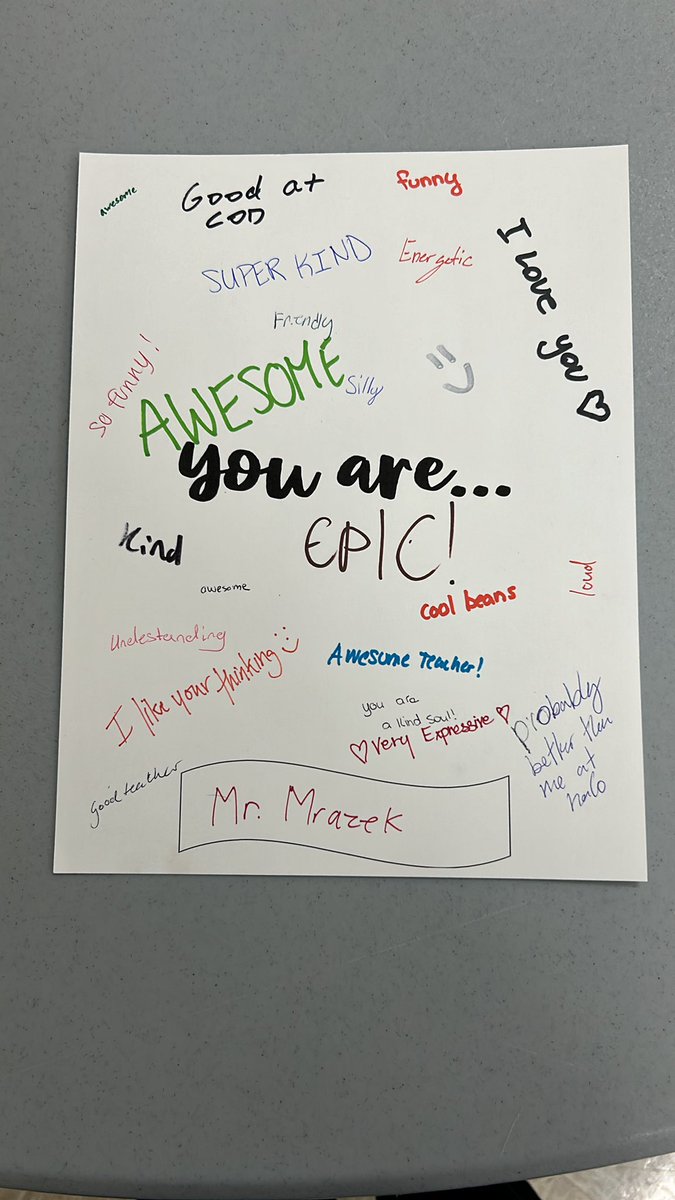 awesome
Good at
COD
funny
SUPER KIND
Energetic
I love you
Friendly
so funny!
AWESOME
Silly
you are...
EPIC!
Kind
awesome
cool beans
loud
Understanding
I like your thinking
Awesome Teacher!
you are
a kind soul!
Very Expressive
probably
better than
me at
halo
good teacher
Mr. Mrazek